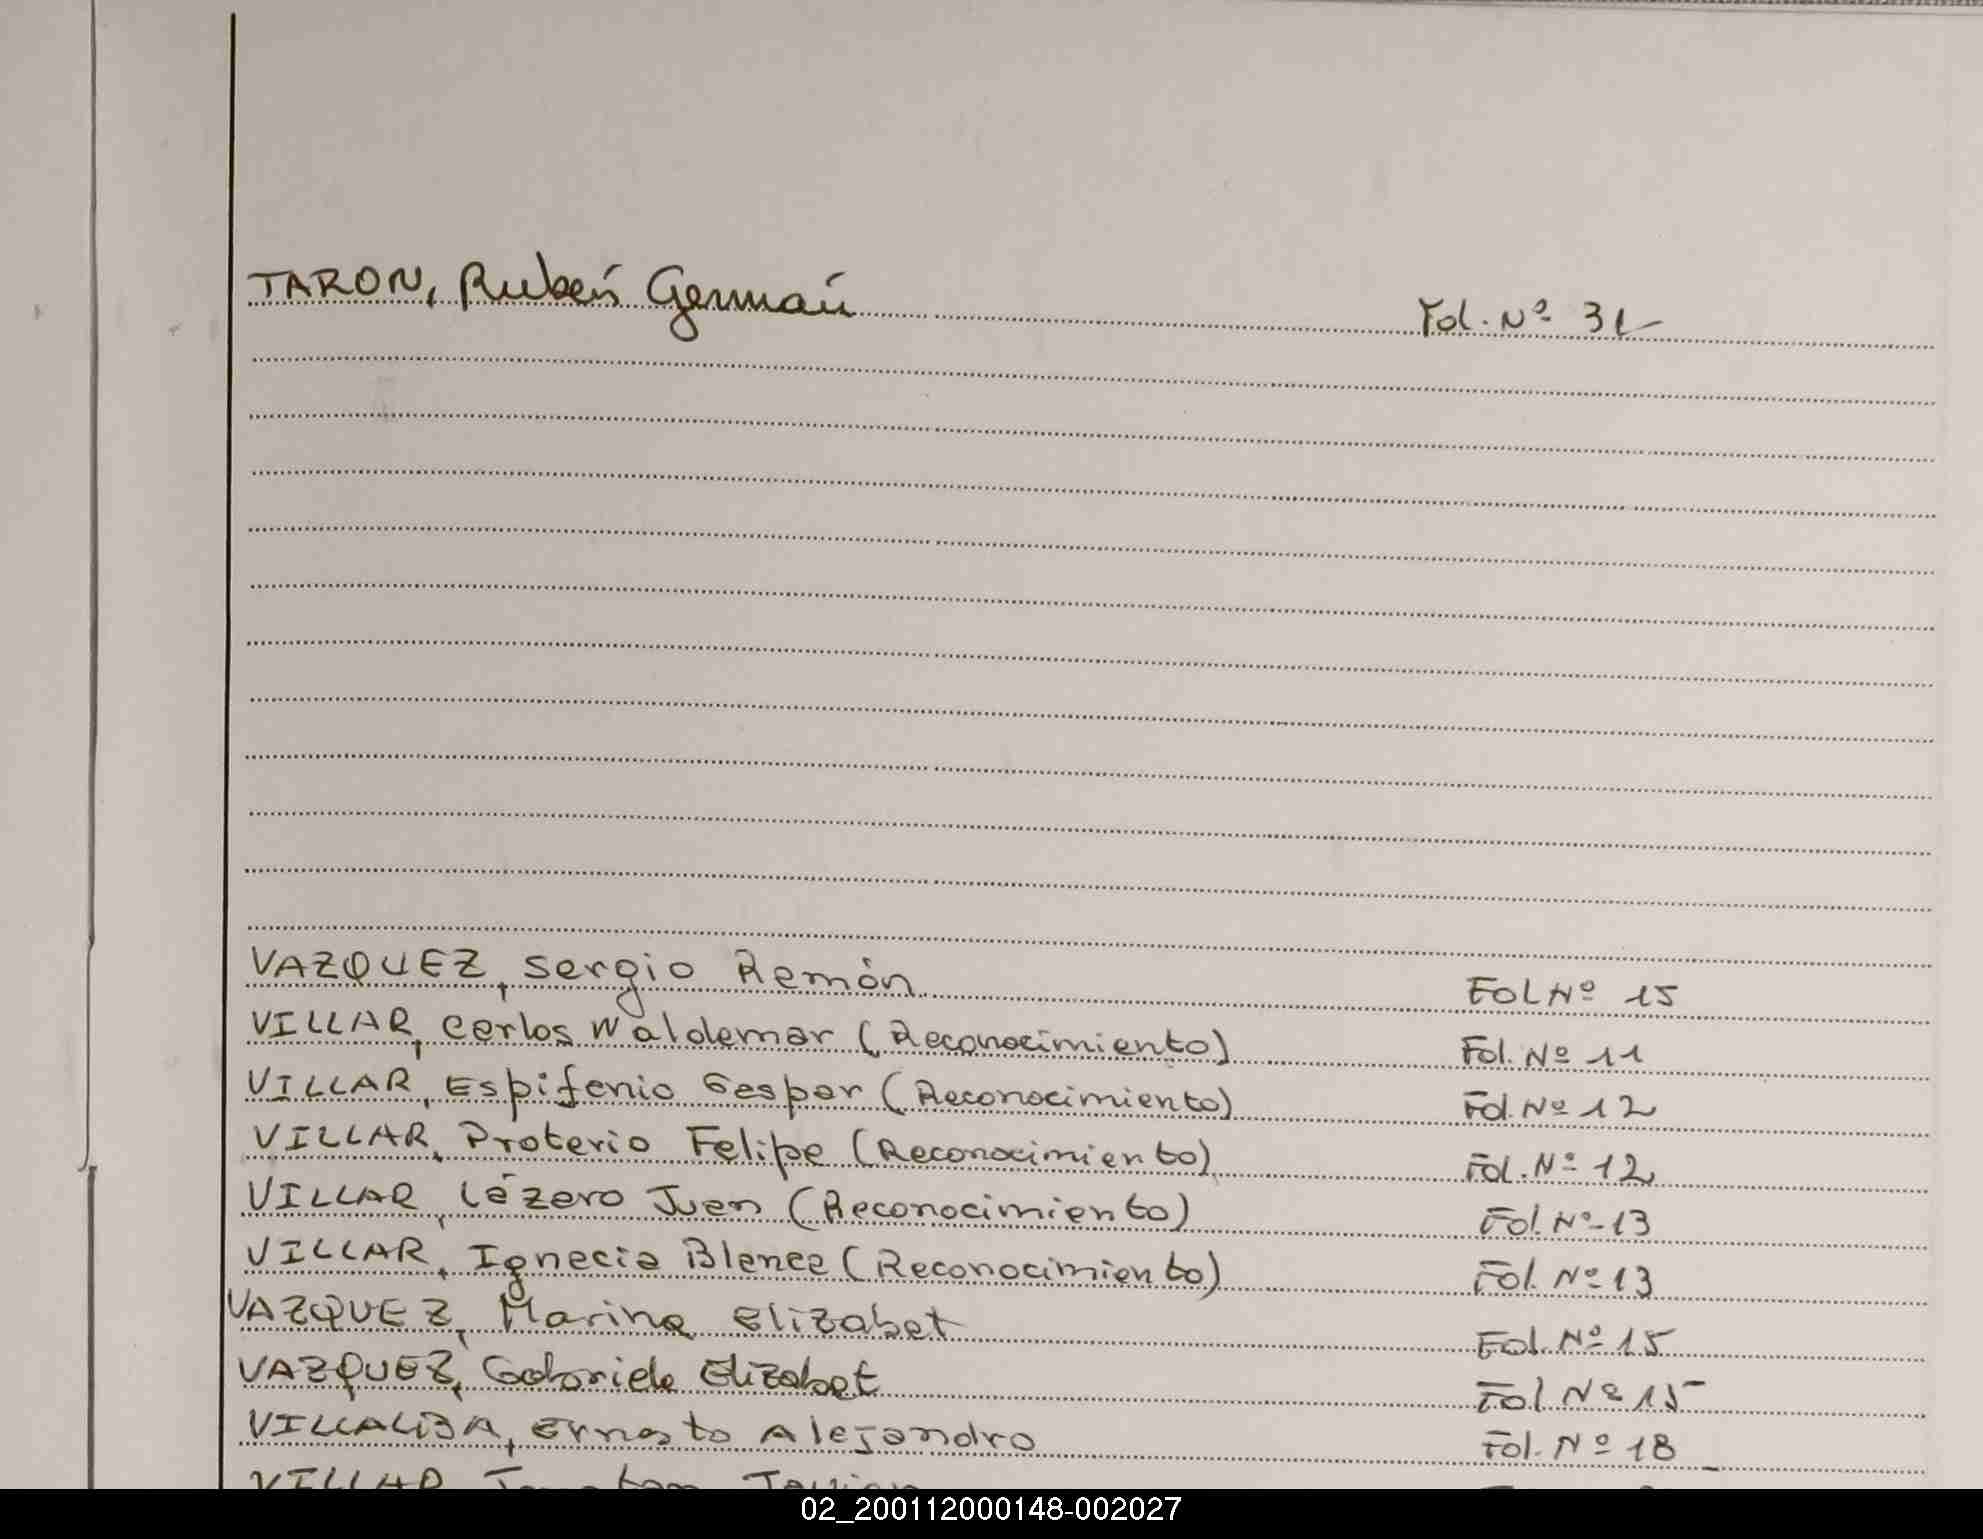 TARON, Rubén Germán Fol. Nº 31
VAZQUEZ, Sergio Ramón Fol Nº 15
VILLAR, Carlos Waldemar (Reconocimiento) Fol. Nº 11
VILLAR, Espifanio Gaspar (Reconocimiento) Fol. Nº 12
VILLAR, Proterio Felipe (Reconocimiento) Fol. Nº 12
VILLAR, Lázaro Juan (Reconocimiento) Fol. Nº 13
VILLAR, Ignacia Blanca (Reconocimiento) Fol. Nº 13
VAZQUEZ, Marina Elizabet Fol. Nº 15
VAZQUEZ, Gabriela Elizabet Fol Nº 15
VILLALBA, Ernesto Alejandro Fol. Nº 18
VILLAR
02_200112000148-002027